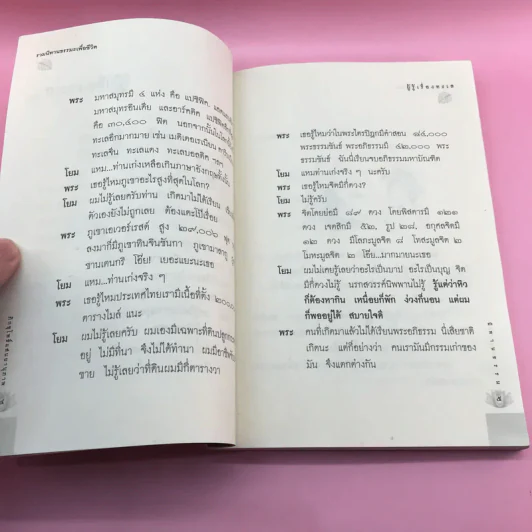 รวมนิทานธรรมะเพื่อชีวิต
พระ มหาสมุทรมี ๔ แห่ง คือ แปซิฟิค
มหาสมุทรอินเดีย และอาร์คติค
คือ ๓๐,๕๐๐ ฟิต นอกจากนั้น
ทะเลอีกมากมาย เช่น เมดิเตอเรเนียน
ทะเลจีน ทะเลแดง ทะเลบอลติค ฯลฯ
โยม แหม...ท่านเก่งเหลือเกินภาษาอังกฤษทั้งนั้น
พระ เธอรู้ไหมภูเขาอะไรสูงที่สุดในโลก?
โยม ผมไม่รู้เลยครับท่าน เกิดมาไม่ได้เรียน
ตัวเองยังไม่ถูกเลย ต้องแตะโป้งเรื่อย
พระ ภูเขาเอเวอร์เรสต์ สูง ๒๙,๐๐๒ ฟุต
ลงมาก็มีภูเขาคินจินจังกา ภูเขามาคารู
ซานเดนกรี โอ้ย! เยอะแยะนะเธอ
โยม แหม...ท่านเก่งจริง ๆ
พระ เธอรู้ไหมประเทศไทยเรามีเนื้อที่ตั้ง ๒๐๐,๐๐๐
ตารางไมล์ แนะ
โยม ผมไม่รู้เลยครับ ผมเองมีเฉพาะที่ดินปลูก
อยู่ ไม่มีที่นา จึงไม่ได้ทำนา ผมมีอาชีพ
ขาย ไม่รู้เลยว่าที่ดินผมมีกี่ตารางวา
๔
ผู้รู้เรื่องทะเล
พระ เธอรู้ไหมว่าในพระไตรปิฎกมีคำสอน ๘๔,๐๐๐
พระธรรมขันธ์ พระอภิธรรมมี ๔๒,๐๐๐ พระ
ธรรมขันธ์ ฉันนี่เรียนจบอภิธรรมมหาบัณฑิต
โยม แหมท่านเก่งจริง ๆ นะครับ
พระ เธอรู้ไหมจิตมีกี่ดวง?
โยม ไม่รู้ครับ
พระ จิตโดยย่อมี ๘๙ ดวง โดยพิสดารมี ๑๒๑
ดวง เจตสิกมี ๕๒, รูป ๒๘, อกุศลจิตมี
๑๒ ดวง มีโลภะมูลจิต ๘ โทสะมูลจิต ๒
โมหะมูลจิต ๒ โอ้ย...มากมายนะเธอ
โยม ผมไม่เคยรู้เลยว่าอะไรเป็นบาป อะไรเป็นบุญ จิต
มีกี่ดวงไม่รู้ นรกสวรรค์นิพพานไม่รู้ รู้แต่ว่าหิว
ก็ต้องหากิน เหนื่อยก็พัก ง่วงก็นอน แต่ผม
ก็พออยู่ได้ สบายใจดี
พระ คนที่เกิดมาแล้วไม่ได้เรียนพระอภิธรรม นี่เสียชาติ
เกิดนะ แต่ก็อย่างว่า คนเรามันมีกรรมเก่าของ
มัน จึงแตกต่างกัน
นิทานธรรม
๕